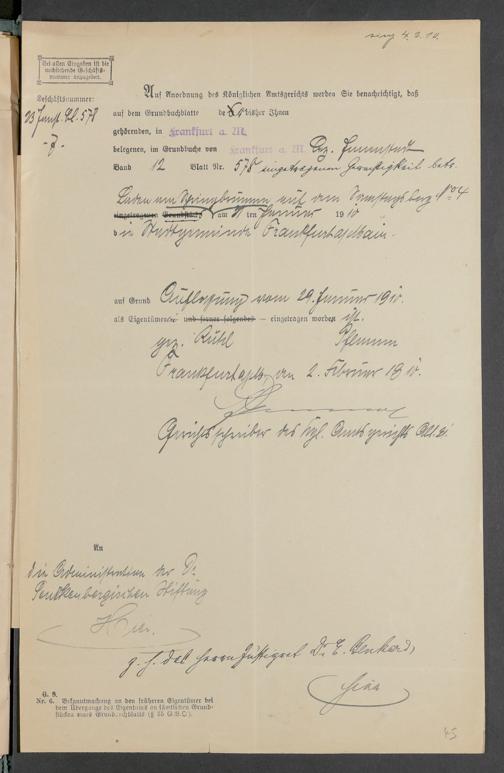 4. 2. 10.
Bei allen Eingaben ist die
nachstehende Geschäfts-
nummer anzugeben.
Geschäftsnummer:
Bl. 578
7.
Auf Anordnung des Königlichen Amtsgerichts werden Sie benachrichtigt, daß
auf dem Grundbuchblatte de bisher Ihnen
gehörenden, in Frankfurt a. M.
belegenen, im Grundbuche von Frankfurt a. M. Bez. Innenstadt
Band 12 Blatt Nr. 578 eingetragenen Gerechtigkeit betr.
Laden am Springbrunnen auf dem No 4
eingetragenen Grundstücks am ten Januar 1910
die Stadtgemeinde Frankfurt a/Main.
auf Grund Auflassung vom 29. Januar 1910.
als Eigentümer und ferner folgendes — eingetragen worden ist.
gez. Rühl
Frankfurt a/M, den 2. Februar 1910.
Gerichtsschreiber des Kgl. Amtsgerichts Abt.
An
die Administration der Dr.
Senckenbergischen Stiftung
Hier.
z. H. des Herrn Justizrat Dr. E. Benkard,
hier
G. B.
Nr. 6. Bekanntmachung an den früheren Eigentümer bei
dem Übergange des Eigentums an sämtlichen Grund-
stücken eines Grundbuchblatts (§ 55 G.B.O.).
45